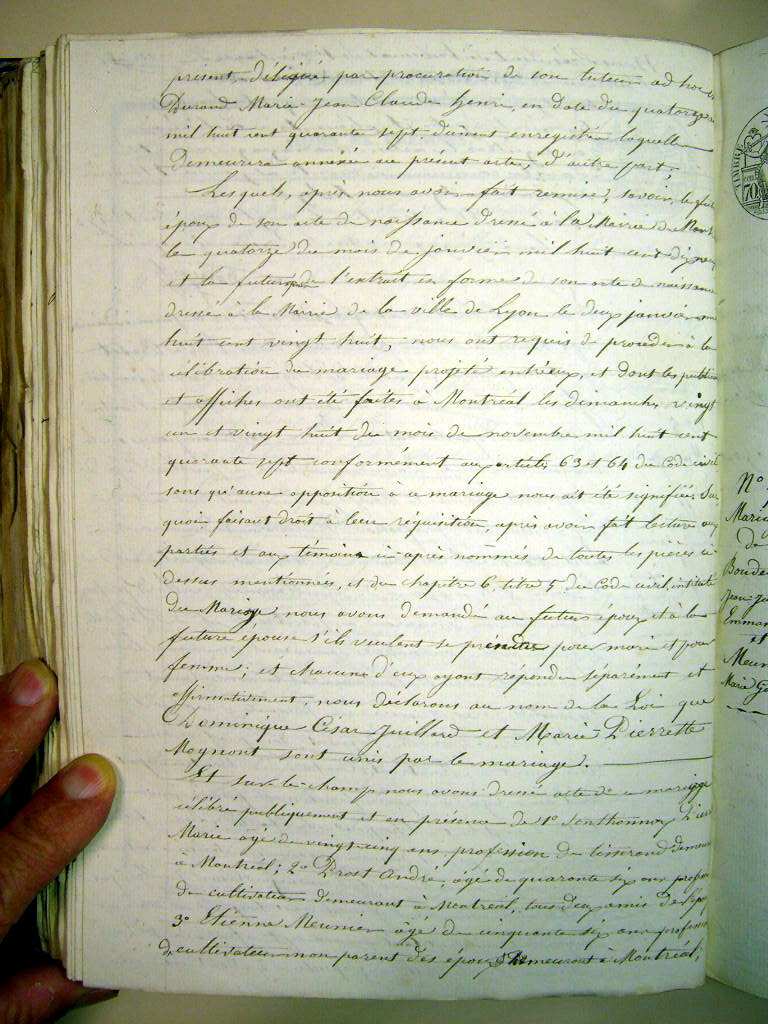 présent, délégué par procuration de son tuteur ad hoc
Durand Marie-Jean Claude henri, en date du quatorze
mil huit cent quarante sept dûment enregistrée laquelle
Demeurera annexée au présent acte, d'autre part;
Lesquels, après nous avoir fait remise, savoir, le futur
époux de son acte de naissance dressé à la Mairie de Mont
le quatorze du mois de janvier mil huit cent dix
et la future de l'extrait en forme de son acte de naissance
dressé à la Mairie de la ville de Lyon le deux janvier mil
huit cent vingt huit, nous ont requis de procéder à la
célébration du mariage projeté entr'eux, et dont les publica
et affiches ont été faites à Montréal les dimanches vingt
un et vingt huit du mois de novembre mil huit cent
quarante sept conformément aux articles 63 et 64 du Code civil
sans qu'aucune opposition à ce mariage nous ait été signifiée. Sur
quoi faisant droit à leur réquisition, après avoir fait lecture aux
parties et aux témoins ci-après nommés de toutes les pièces ci
dessus mentionnées, et du chapitre 6, titre 5 du Code civil, intitulé
du Mariage, nous avons demandé au futur époux et à la
future épouse s'ils veulent se prendre pour mari et pour
femme; et chacun d'eux ayant répondu séparément et
affirmativement, nous déclarons au nom de la Loi que
Dominique César Juillard et Marie-Pierrette
Mognont sont unis par le mariage.
Et sur-le-champ nous avons dressé acte de ce mariage
célébré publiquement et en présence de 1° Sonthonnax Pierre
Marie âgé de vingt-cinq ans profession de tisserand demeu
à Montréal; 2° Prost André, âgé de quarante six ans profession
de cultivateur demeurant à Montréal, tous deux amis de l'épou
3° Etienne Meunier âgé de cinquante six ans profession
de cultivateur non parent des époux demeurant à Montréal,
TIMBRE
70
N°
Maria
de
Boude
Jean-Ju
Emman
et
Meun
Marie Ge